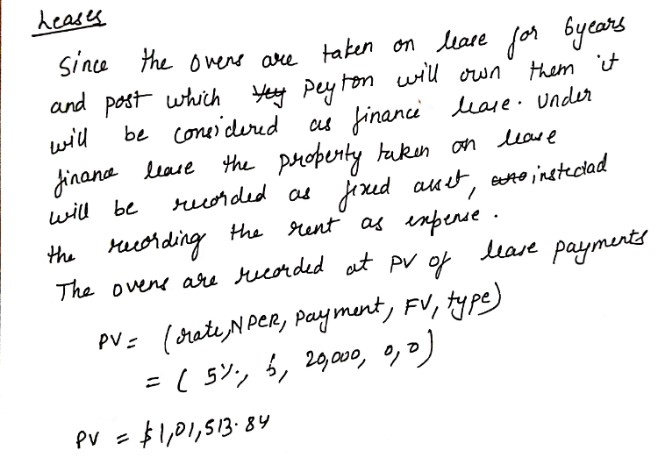 Leases
Since the ovens are taken on lease for 6years
and post which Peyton will own them it
will be considered as finance lease. Under
finance lease the property taken on lease
will be recorded as fixed asset, instedad
the recording the rent as expense.
The ovens are recorded at PV of lease payments
PV = (rate, NPER, payment, FV, type)
= ( 5%, 6, 20,000, 0, 0)
PV = $1,01,513.84